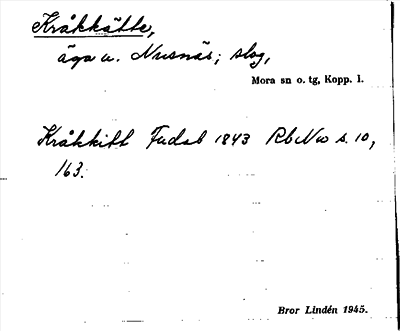 Kråkkätte,
äga u. Nusnäs; slog,
Mora sn o. tg, Kopp. l.
Kråkkitt Fudab 1843 Rb Nw s. 10,
163.
Bror Lindén 1945.